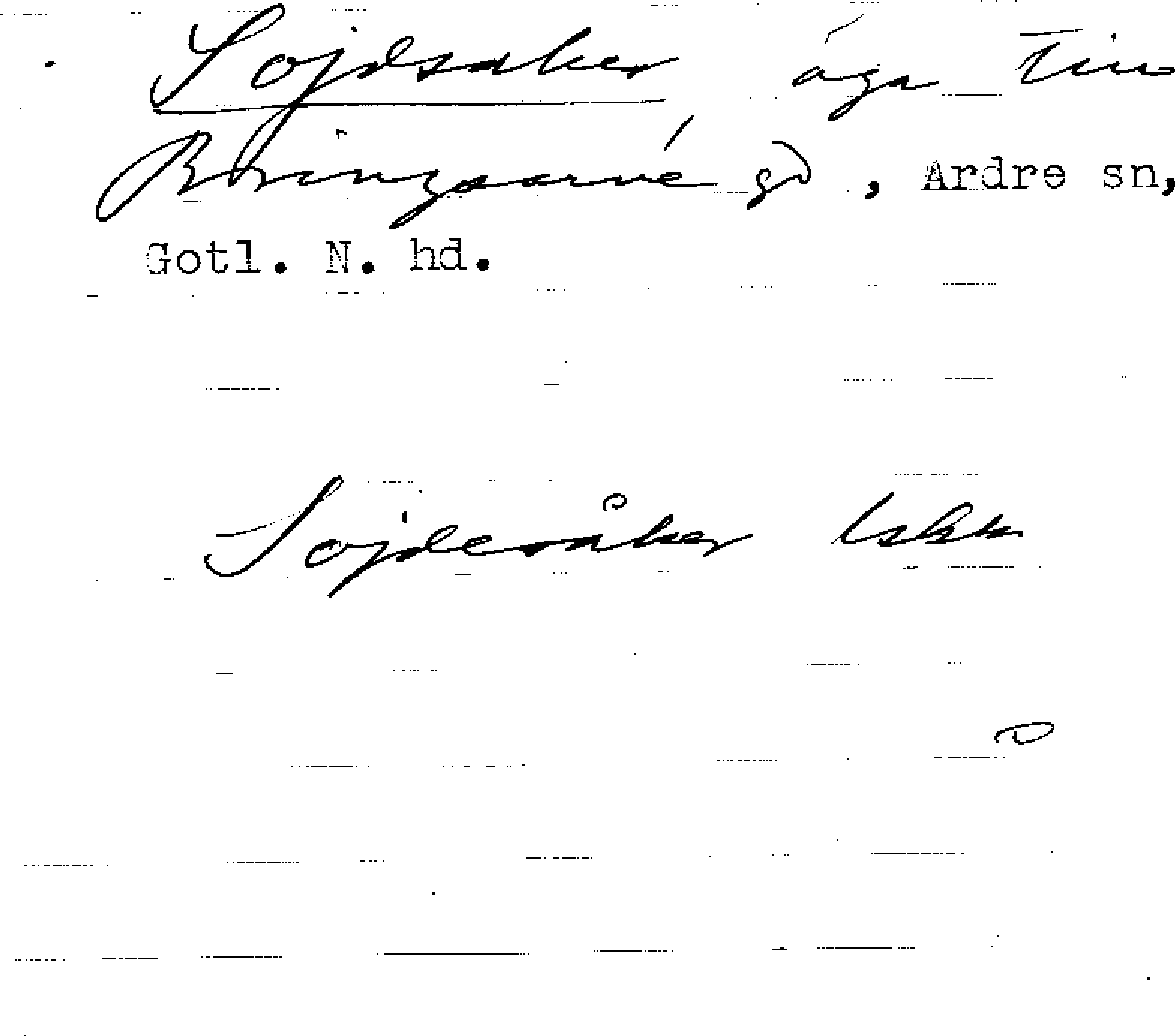 Sojdsaker äga till
Bringsarve gd, Ardre sn,
Gotl. N. hd.
Sojdesåker